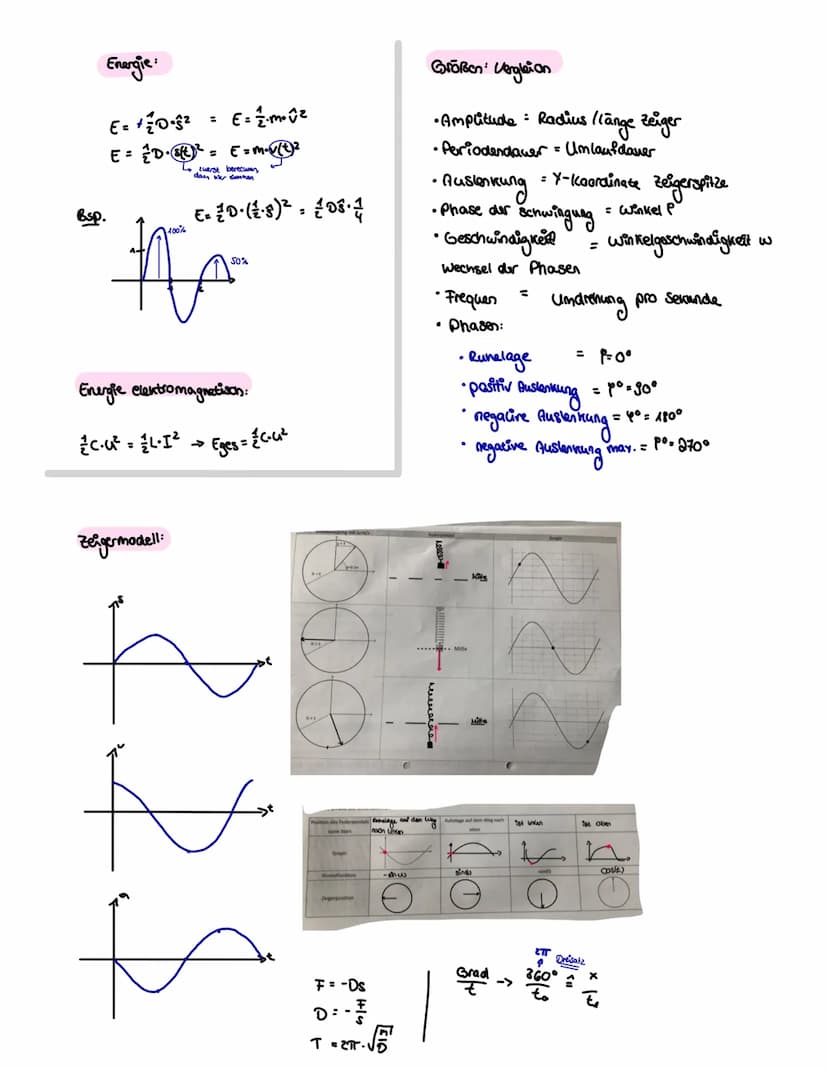 Energie:
E = ½D·ŝ² = E = ½·m·v̂²
E = ½D·s(t)² = E = m·v(t)²
zuerst berechnen,
Bsp.
E = ½D·(½·ŝ)² = ½Dŝ·¼
100%
50%
Energie elektromagnetisch:
½C·U² = ½L·I² → Eges = ½C·U²
Größen: Vergleich
• Amplitude = Radius / länge Zeiger
• Periodendauer = Umlaufdauer
• Auslenkung = Y-Koordinate Zeigerspitze
• Phase der Schwingung = Winkel φ
• Geschwindigkeit = Winkelgeschwindigkeit w
Wechsel der Phasen
• Frequen = Umdrehung pro Sekunde
• Phasen:
• Ruhelage = φ=0°
• positiv Auslenkung = φ°=90°
• negative Auslenkung = φ° = 180°
• negative Auslenkung max. = φ° = 270°
Zeigermodell:
s
t
v
t
a
t
Mitte
Mitte
Mitte
Ruhelage auf dem Weg
nach unten
Ruhelage auf dem Weg nach
oben
ist unten
ist oben
Zeigerposition
- sin(x)
sin(x)
cos(x)
F = -Ds
D = - F/s
T = 2π·√(m/D)
Grad/t → 360°/t₀ ≙ x/t₁
2π
Dreisatz